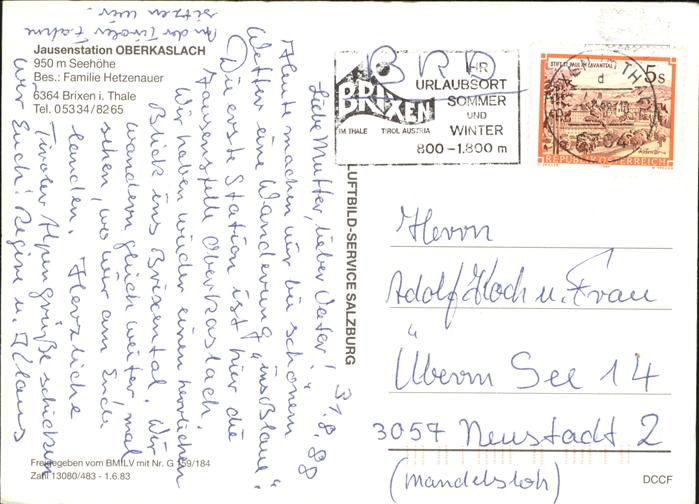 An der Tiroler Fahne
sitzen wir.
Jausenstation OBERKASLACH
950 m Seehöhe
Bes.: Familie Hetzenauer
6364 Brixen i. Thale
Tel. 05334/8265
31.8.88
Liebe Mutter, lieber Vater!
Heute machen wir bei schönem
Wetter eine Wanderung "ins Blaue".
Die erste Station ist hier die
Jausenstelle Oberkaslach.
Wir haben wieder einen herrlichen
Blick ins Brixental. Wir
wandern gleich weiter mal
sehen, wo wir am Ende
landen. Herzliche
Tiroler Alpengrüße schicken
wir Euch! Regine u. Klaus
Freigegeben vom BMfLV mit Nr. G 159/184
Zahl 13080/483 - 1.6.83
LUFTBILD-SERVICE SALZBURG
BRD
BRIXEN
IM THALE TIROL AUSTRIA
IHR
URLAUBSORT
SOMMER
UND
WINTER
800-1.800 m
STIFT ST. PAUL IM LAVANTTAL
5 S
REPUBLIK ÖSTERREICH
d
Herrn
Adolf Koch u. Frau
Überm See 14
3057 Neustadt 2
(Mandelsloh)
DCCF